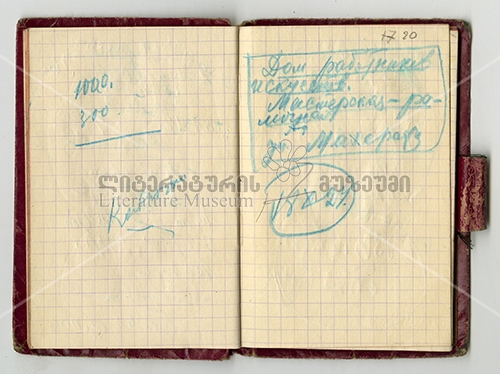 1000.
300.
17 20
Дом работников
искусств.
Мастерская – ра-
мочная
Махарадз
ლიტერატურის მუზეუმი
Literature Museum
№ 21.